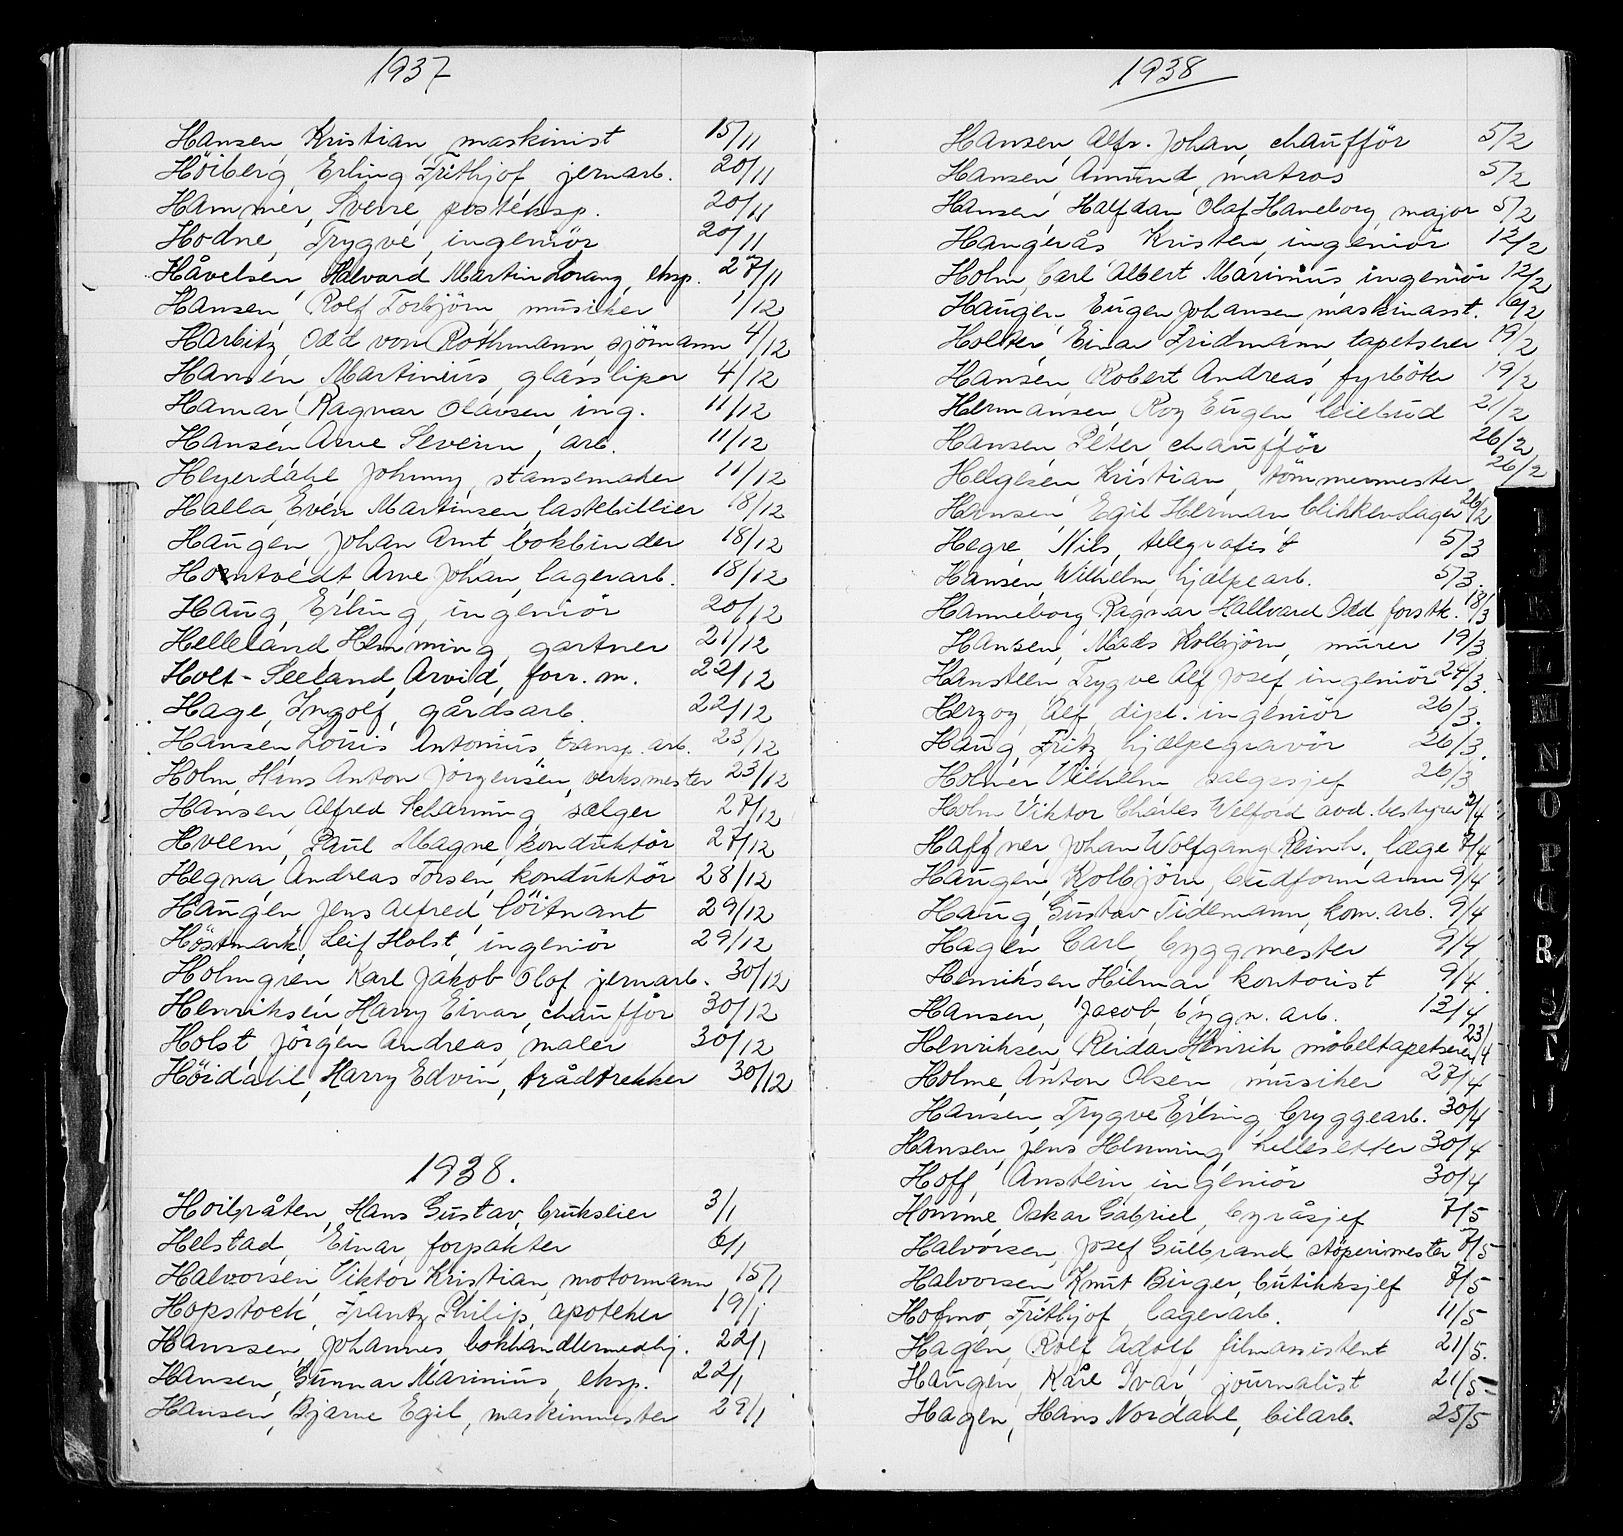 1937
Hansen, Kristian, maskinist 15/11
Höiberg, Erling Frithjof jernarb. 20/11
Hammer, Sverre posteksp. 20/11
Hodne, Trygve, ingeniör 20/11
Håvelsen, Halvard Martin Lorang, eksp. 27/11
Hansen, Rolf Torbjörn, musiker 1/12
Harbitz, Odd von Rothmann, sjömann 4/12
Hansen, Martinius, glassliper 4/12
Hamar, Ragnar Olavsen ing. 11/12
Hansen Arne Severin, arb. 11/12
Heyerdahl Johnny, stansemaker 11/12
Halla, Even Martinsen, lastebileier 18/12
Haugen, Johan Arnt, bokbinder 18/12
Horntvedt Arne Johan, lagerarb. 18/12
Haug, Erling, ingeniör 20/12
Helleland Hemming, gartner 21/12
Holt-Seeland, Arvid, forr.m. 22/12
Hage, Ingolf, gårdsarb. 22/12
Hansen, Louis Antonius, transp. arb. 23/12
Holm, Hans Anton Jörgensen, verksmester 23/12
Hansen Alfred Scharning selger 27/12
Hveem, Paul Magne, konduktör 27/12
Hegna, Andreas Torsen, konduktör 28/12
Haugen Jens Alfred, löitnant 29/12
Höstmark, Leif Holst, ingeniör 29/12
Holmgren Karl Jakob Olof jernarb. 30/12
Henriksen, Harry Einar, chaufför 30/12
Holst, Jörgen Andreas, maler 30/12
Höidahl, Harry Edvin, trådtrekker 30/12
1938.
Hoilråten, Hans Gustav, brukseier 3/1
Helstad, Einar, forpakter 6/1
Halvorsen, Viktor Kristian, motormann 15/1
Hopstock, Frantz Philip, apoteker 19/1
Hanssen, Johannes, bokhandlermedhj. 22/1
Hansen, Gunnar Marinius, eksp. 22/1
Hansen, Bjarne Egil, maskinmester 29/1
1938
Hansen, Alfr. Johan, chaufför 5/2
Hansen, Amund, matros 5/2
Hansen, Halfdan Olaf Haneborg, major 5/2
Haugerås Kristen, ingeniör 12/2
Holm, Carl Albert Marinius ingeniör 12/2
Haugen, Eugen Johansen, maskinasst. 16/2
Holter, Einar Fridmann tapetserer 19/2
Hansen, Robert Andreas, fyrböter 19/2
Hermansen Roy Eugen, leiebud 21/2
Hansen, Peter, chaufför 26/2
Helgesen, Kristian, tömmermester 26/2
Hansen, Egil Herman blikkenslager 26/2
Hegre, Nils, telegrafist 5/3
Hansen, Wilhelm, hjelpearb. 5/3.
Hanneborg, Ragnar Hallvard Odd forstk. 18/3
Hansen, Mads Kolbjörn, murer 19/3
Hansteen, Trygve Alf Josef ingeniör 24/3.
Herzog, Alf, dipl. ingeniör 26/3.
Haug, Fritz, hjælpegravör 26/3.
Holmer Vilhelm salgssjef 26/3
Holm Viktor Charles Welford avd.bestyrer 2/4
Haffner, Johan Wolfgang Reinh., læge 7/4
Haugen, Kolbjörn, budformann 9/4
Haug, Gustav Tidemann, kom.arb. 9/4
Hagen, Carl, byggmester 9/4
Henriksen Hilmar, kontorist 9/4.
Hansen, Jacob, bygn. arb. 12/4
Henriksen, Reidar Henrik möbeltapetserer 23/4
Holme, Anton Olsen, musiker 27/4
Hansen, Trygve Erling, bryggearb. 30/4
Hansen, Jens Henning, hellesetter 30/4
Hoff, Anstein ingeniör 30/4
Homme, Oskar Gabriel, byråsjef 7/5
Halvorsen, Josef Gulbrand, stöperimester 7/5
Halvorsen, Knut Birger, butikksjef 7/5
Holmo, Frithjof, lagerarb. 11/5
Hagen, Rolf Adolf filmassistent 21/5.
Haugen, Kåre Ivar, journalist 21/5
Hagen, Hans Nordahl, bilarb. 25/5
I
J
K
L
M
N
O
P
Q
R
S
T
U
V